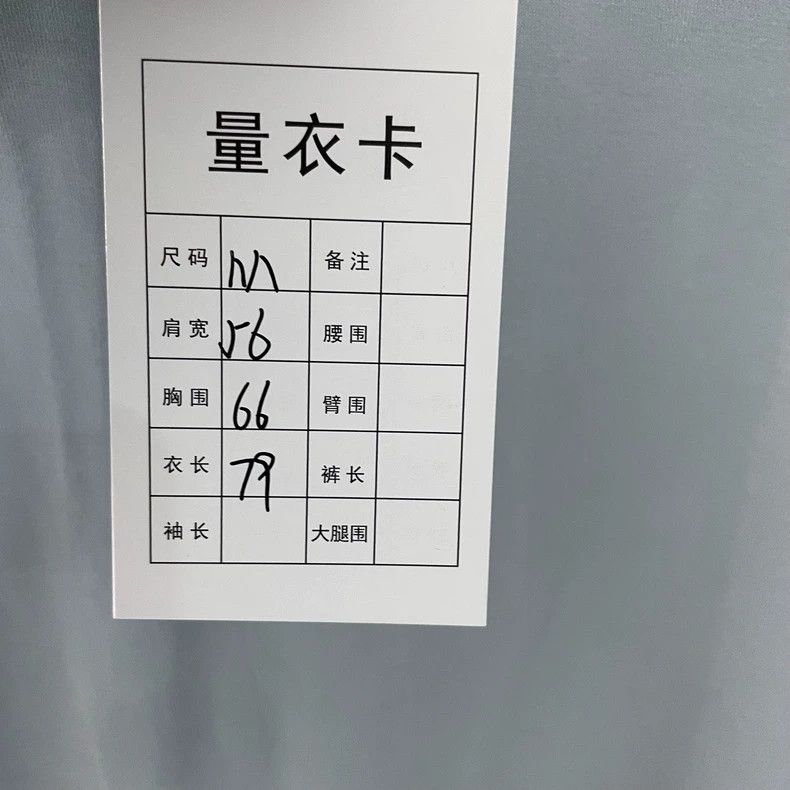 量衣卡
尺码 M 备注
肩宽 56 腰围
胸围 66 臂围
衣长 79 裤长
袖长 大腿围